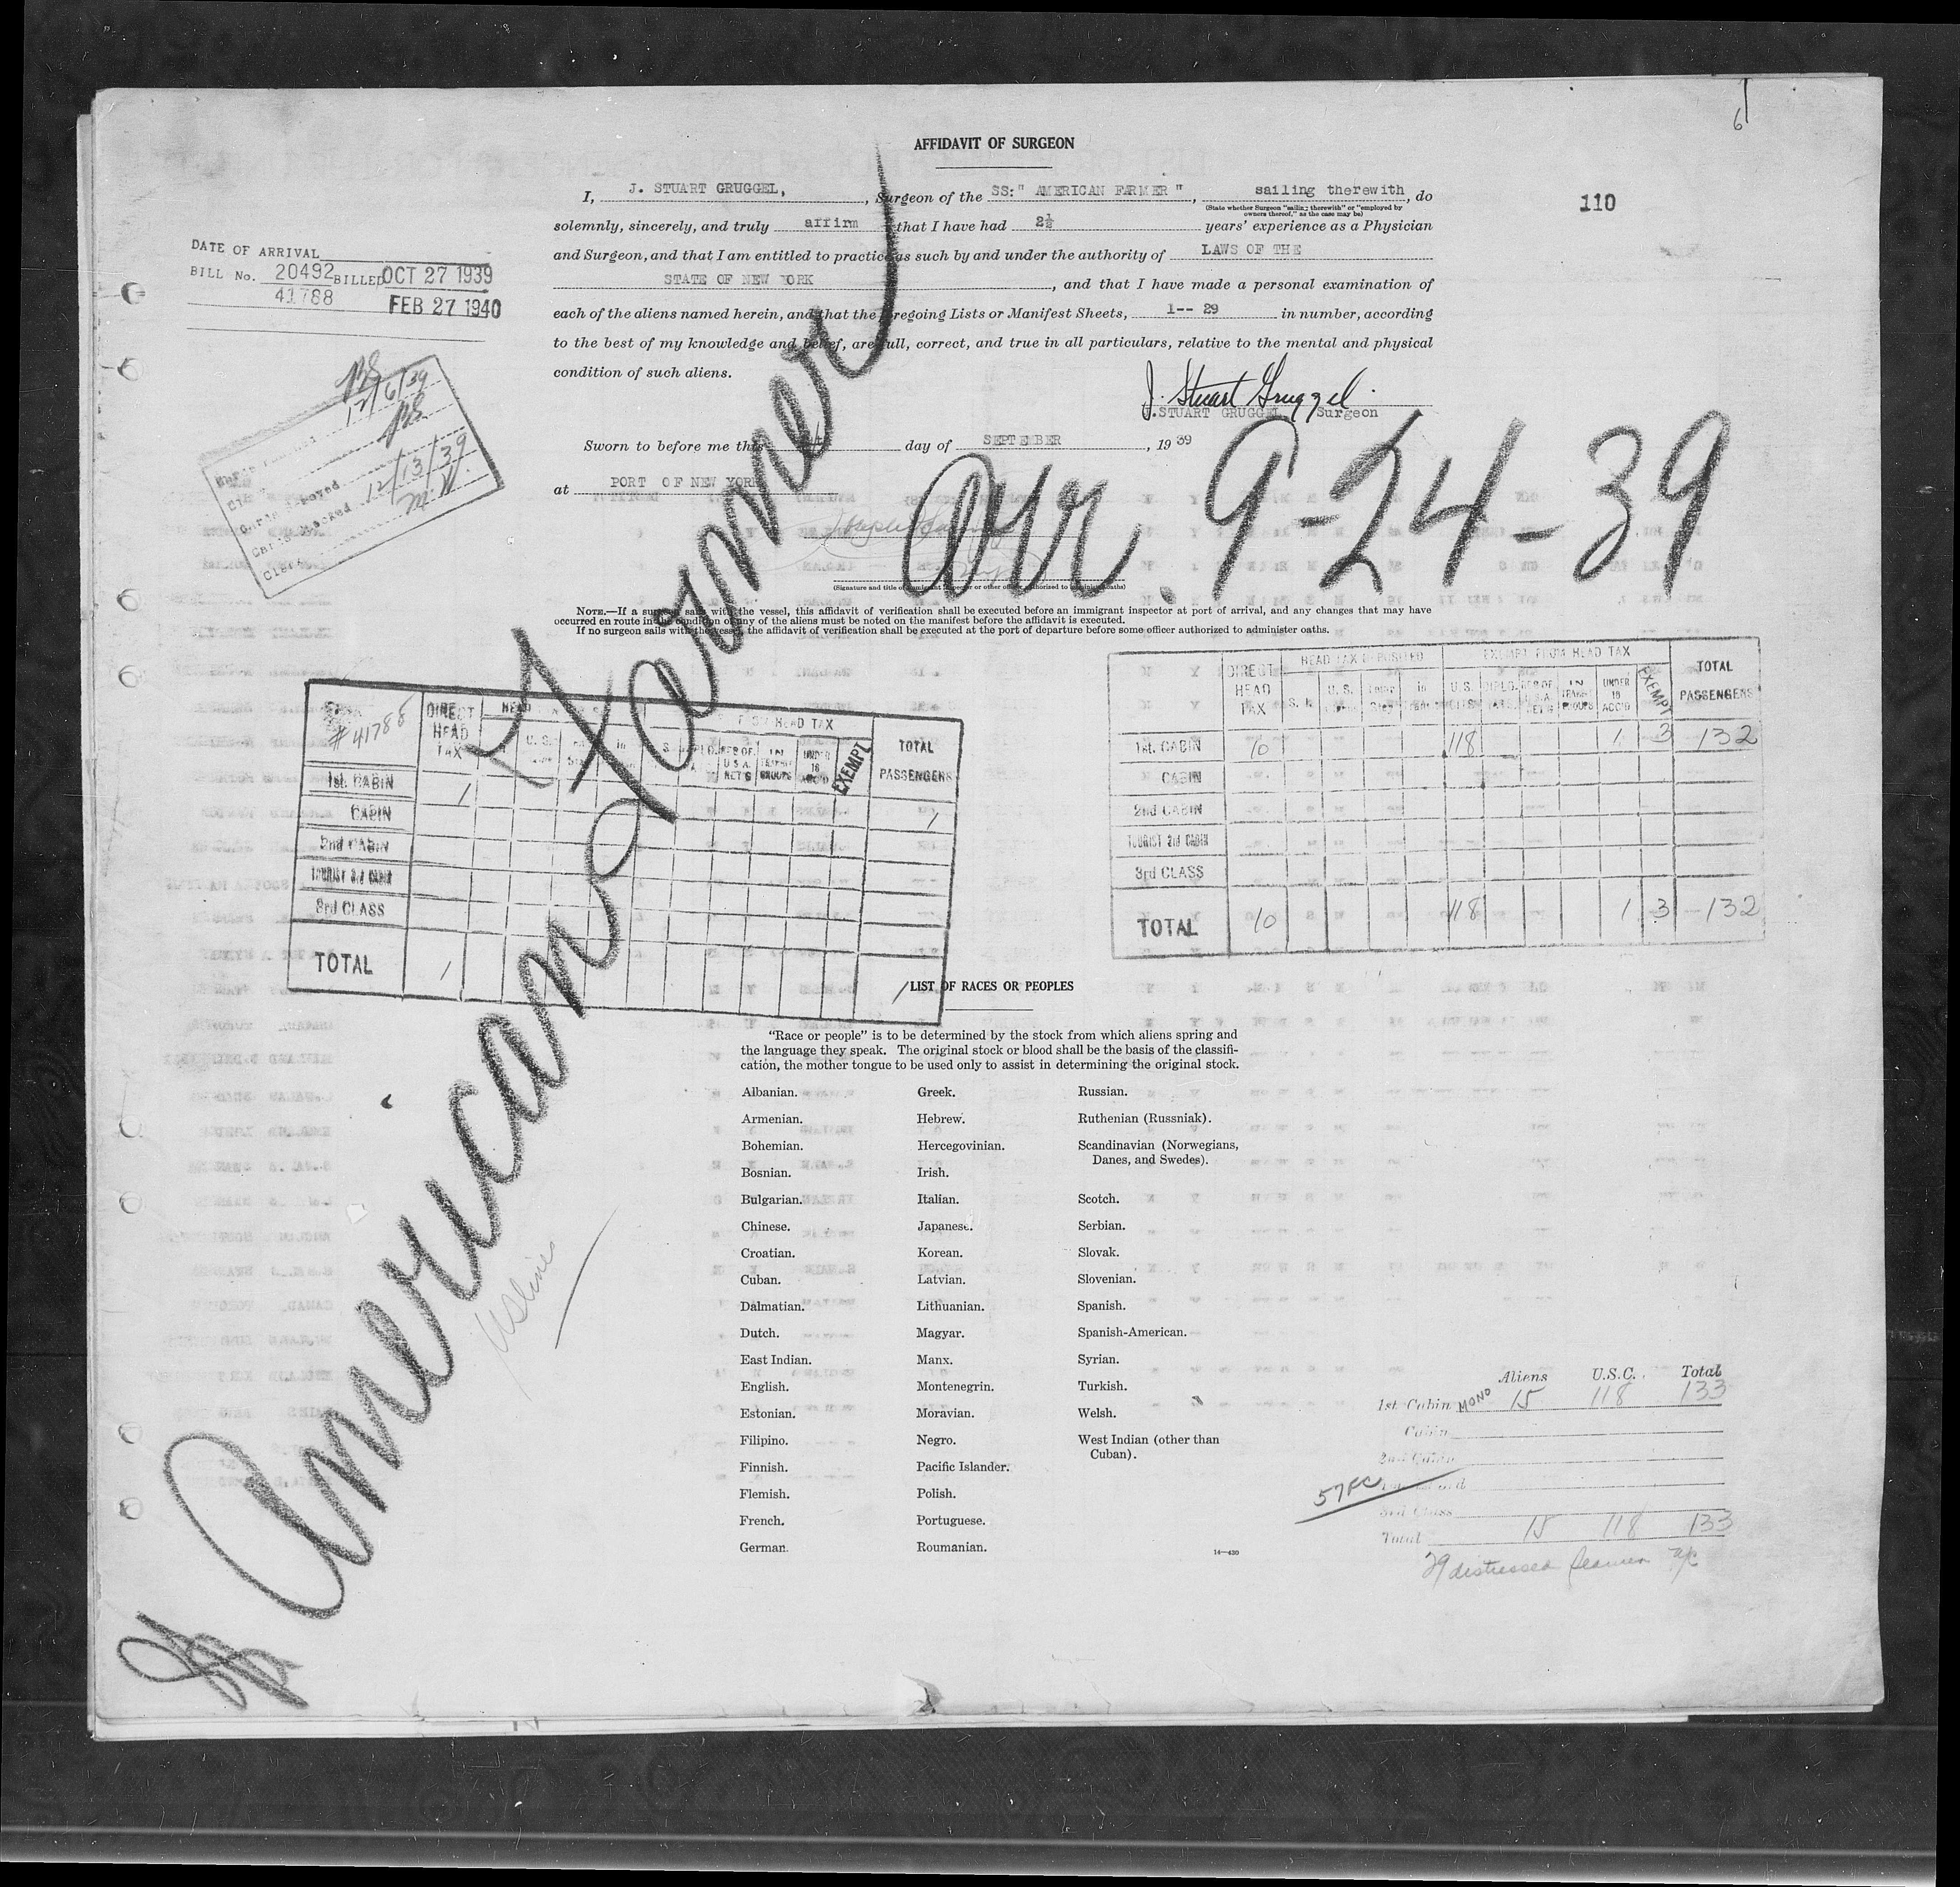 AFFIDAVIT OF SURGEON
I, J. STUART GRUGGEL, , Surgeon of the SS:" AMERICAN FARMER ", sailing therewith , do
(State whether Surgeon "sailing therewith" or "employed by
owners thereof," as the case may be)
110
solemnly, sincerely, and truly affirm that I have had 2½ years' experience as a Physician
and Surgeon, and that I am entitled to practice as such by and under the authority of LAWS OF THE
STATE OF NEW YORK , and that I have made a personal examination of
each of the aliens named herein, and that the foregoing Lists or Manifest Sheets, 1-- 29 in number, according
to the best of my knowledge and belief, are full, correct, and true in all particulars, relative to the mental and physical
condition of such aliens.
J. Stuart Gruggel
J.STUART GRUGGEL Surgeon
Sworn to before me this day of SEPTEMBER , 19 39
at PORT OF NEW YORK
DATE OF ARRIVAL
BILL No. 20492 BILLED OCT 27 1939
41788 FEB 27 1940
12/6/39
Cards Checked 12/13/39
M.W.
Clerk
Arr. 9-24-39
SS American Farmer
US Lines
NOTE.—If a surgeon sails with the vessel, this affidavit of verification shall be executed before an immigrant inspector at port of arrival, and any changes that may have
occurred en route in the condition of any of the aliens must be noted on the manifest before the affidavit is executed.
If no surgeon sails with the vessel, the affidavit of verification shall be executed at the port of departure before some officer authorized to administer oaths.
# 41788 DIRECT HEAD TAX HEAD TAX TOTAL PASSENGERS
U.S. RES OF U.S.A. RET'G IN TRANSIT GROUPS UNDER 16 ACC'D EXEMPT
1st. CABIN 1
CABIN 1
2nd CABIN
TOURIST 3rd CABIN
3rd CLASS
TOTAL 1 1
DIRECT HEAD TAX HEAD TAX DEPOSITED EXEMPT FROM HEAD TAX TOTAL PASSENGERS
U.S. U.S. DIPLO. RES OF U.S.A. RET'G IN TRANSIT GROUPS UNDER 16 ACC'D EXEMPT
1st. CABIN 10 118 1 3 132
CABIN
2nd CABIN
TOURIST 3rd CABIN
3rd CLASS
TOTAL 10 118 1 3 132
LIST OF RACES OR PEOPLES
"Race or people" is to be determined by the stock from which aliens spring and
the language they speak. The original stock or blood shall be the basis of the classifi-
cation, the mother tongue to be used only to assist in determining the original stock.
Albanian. Greek. Russian.
Armenian. Hebrew. Ruthenian (Russniak).
Bohemian. Hercegovinian. Scandinavian (Norwegians,
Danes, and Swedes).
Bosnian. Irish.
Bulgarian. Italian. Scotch.
Chinese. Japanese. Serbian.
Croatian. Korean. Slovak.
Cuban. Latvian. Slovenian.
Dalmatian. Lithuanian. Spanish.
Dutch. Magyar. Spanish-American.
East Indian. Manx. Syrian.
English. Montenegrin. Turkish.
Estonian. Moravian. Welsh.
Filipino. Negro. West Indian (other than
Cuban).
Finnish. Pacific Islander.
Flemish. Polish.
French. Portuguese.
German. Roumanian.
14—430
Aliens U.S.C. Total
1st Cabin MONO 15 118 133
Cabin
2nd Cabin
3rd Class
Total 15 118 133
29 distressed seamen